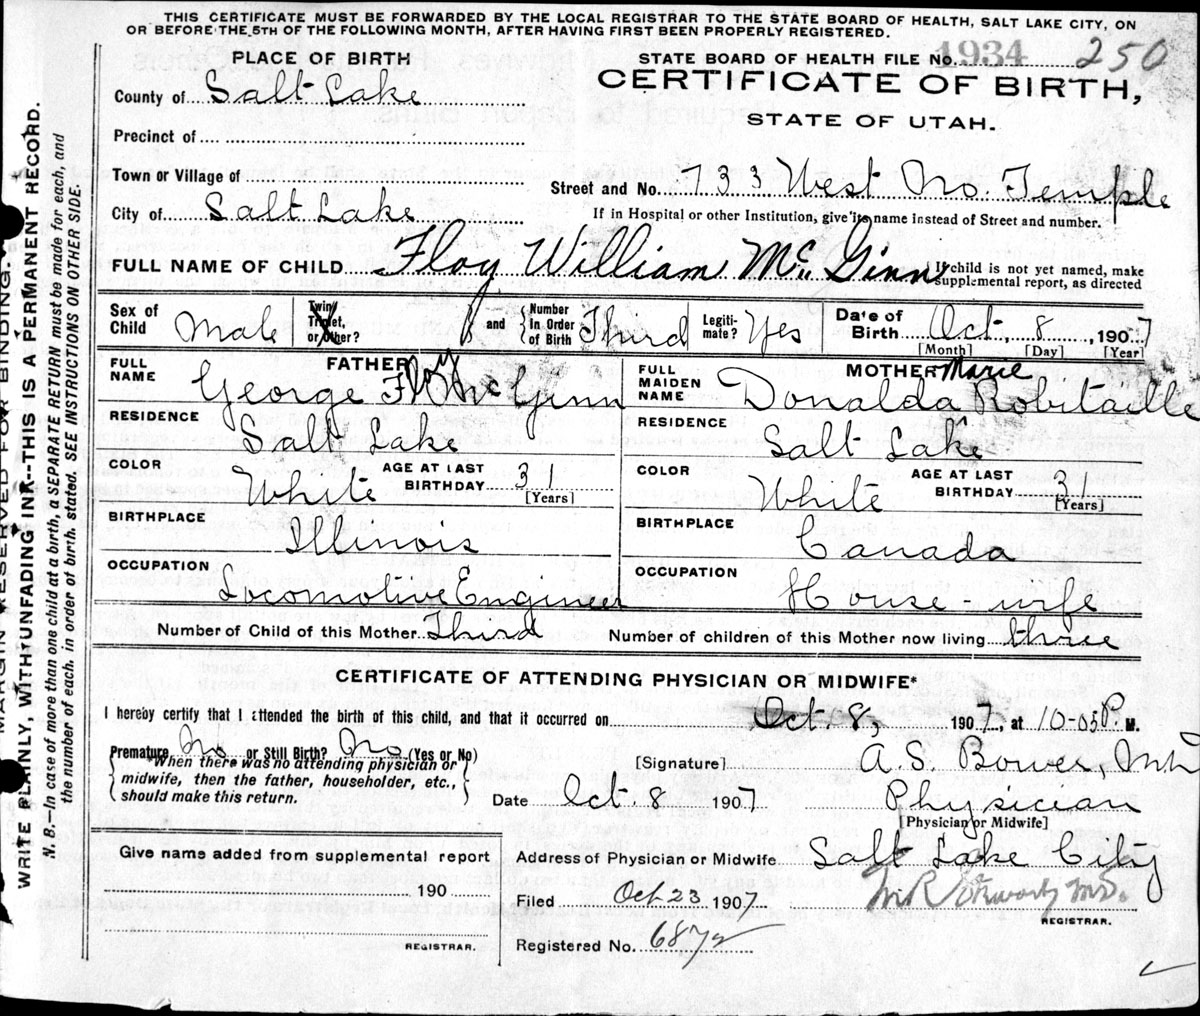 THIS CERTIFICATE MUST BE FORWARDED BY THE LOCAL REGISTRAR TO THE STATE BOARD OF HEALTH, SALT LAKE CITY, ON
OR BEFORE THE 5TH OF THE FOLLOWING MONTH, AFTER HAVING FIRST BEEN PROPERLY REGISTERED.
PLACE OF BIRTH
STATE BOARD OF HEALTH FILE No. 1934 250
County of Salt Lake
CERTIFICATE OF BIRTH,
STATE OF UTAH.
Precinct of
Town or Village of
Street and No. 733 West No. Temple
City of Salt Lake
If in Hospital or other Institution, give its name instead of Street and number.
FULL NAME OF CHILD Floy William McGinn
If child is not yet named, make supplemental report, as directed
Sex of Child Male
Twin, Triplet, or Other?
and Number In Order of Birth Third
Legitimate? Yes
Date of Birth Oct. 8, 1907
[Month] [Day] [Year]
FATHER
FULL NAME George Floy McGinn
MOTHER
FULL MAIDEN NAME Donalda Marie Robitaille
RESIDENCE Salt Lake
RESIDENCE Salt Lake
COLOR White AGE AT LAST BIRTHDAY 31 [Years]
COLOR White AGE AT LAST BIRTHDAY 31 [Years]
BIRTHPLACE Illinois
BIRTHPLACE Canada
OCCUPATION Locomotive Engineer
OCCUPATION House-wife
Number of Child of this Mother Third Number of children of this Mother now living three
CERTIFICATE OF ATTENDING PHYSICIAN OR MIDWIFE*
I hereby certify that I attended the birth of this child, and that it occurred on Oct. 8, 1907, at 10-05 P. M.
Premature No or Still Birth? No (Yes or No)
*When there was no attending physician or
midwife, then the father, householder, etc.,
should make this return.
[Signature] A.S. Bower, M.D.
Date Oct. 8 1907 Physician
[Physician or Midwife]
Give name added from supplemental report
190
REGISTRAR.
Address of Physician or Midwife Salt Lake City
Filed Oct 23 1907
REGISTRAR.
Registered No.
MARGIN RESERVED FOR BINDING.
WRITE PLAINLY, WITH UNFADING INK--THIS IS A PERMANENT RECORD.
N. B.--In case of more than one child at a birth, a SEPARATE RETURN must be made for each, and
the number of each, in order of birth, stated. SEE INSTRUCTIONS ON OTHER SIDE.